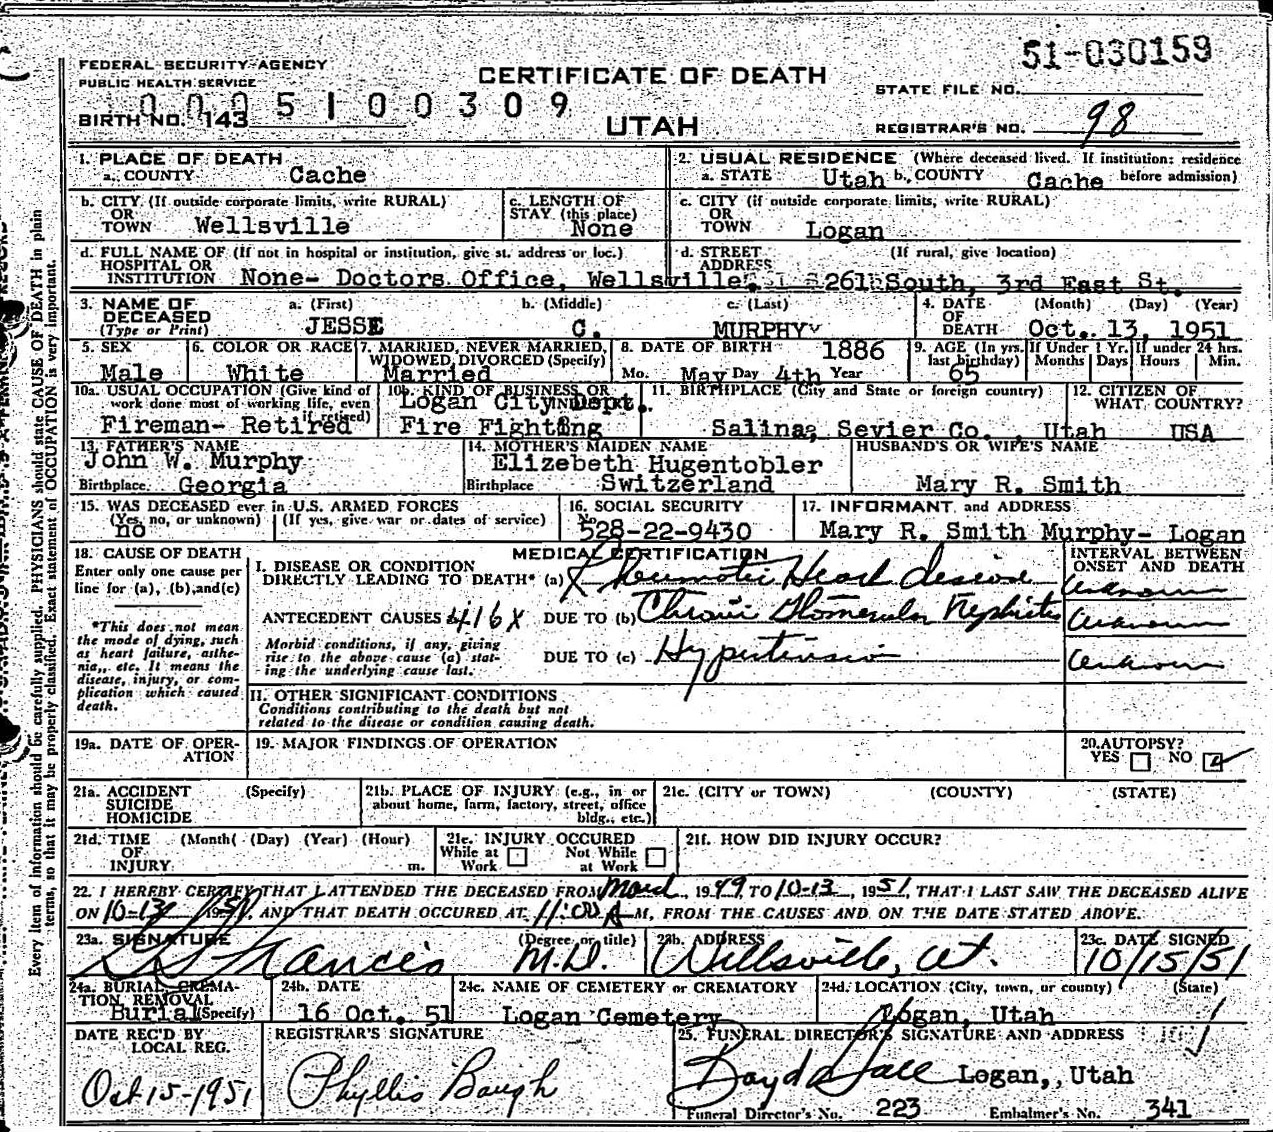 51-030159
FEDERAL SECURITY AGENCY
PUBLIC HEALTH SERVICE
CERTIFICATE OF DEATH
STATE FILE NO.
0005100309
BIRTH NO. 143
UTAH
REGISTRAR'S NO. 98
1. PLACE OF DEATH
a. COUNTY Cache
2. USUAL RESIDENCE (Where deceased lived. If institution: residence before admission)
a. STATE Utah b. COUNTY Cache
b. CITY (If outside corporate limits, write RURAL)
OR
TOWN Wellsville
c. LENGTH OF
STAY (this place)
None
c. CITY (if outside corporate limits, write RURAL)
OR
TOWN Logan
d. FULL NAME OF (If not in hospital or institution, give st. address or loc.)
HOSPITAL OR
INSTITUTION None- Doctors Office, Wellsville,
d. STREET (If rural, give location)
ADDRESS
261 South, 3rd East St.
3. NAME OF
DECEASED
(Type or Print)
a. (First) b. (Middle) c. (Last)
JESSE C. MURPHY
4. DATE (Month) (Day) (Year)
OF
DEATH Oct. 13, 1951
5. SEX
Male
6. COLOR OR RACE
White
7. MARRIED, NEVER MARRIED,
WIDOWED, DIVORCED (Specify)
Married
8. DATE OF BIRTH 1886
Mo. May Day 4th Year
9. AGE (In yrs.
last birthday)
65
If Under 1 Yr.
Months Days
If under 24 hrs.
Hours Min.
10a. USUAL OCCUPATION (Give kind of
work done most of working life, even
if retired)
Fireman- Retired
10b. KIND OF BUSINESS OR
INDUSTRY
Logan City Dept.
Fire Fighting
11. BIRTHPLACE (City and State or foreign country)
Salina, Sevier Co., Utah
12. CITIZEN OF
WHAT COUNTRY?
USA
13. FATHER'S NAME
John W. Murphy
Birthplace. Georgia
14. MOTHER'S MAIDEN NAME
Elizebeth Hugentobler
Birthplace Switzerland
HUSBAND'S OR WIFE'S NAME
Mary R. Smith
15. WAS DECEASED ever in U.S. ARMED FORCES
(Yes, no, or unknown) (If yes, give war or dates of service)
no
16. SOCIAL SECURITY
No.
528-22-9430
17. INFORMANT and ADDRESS
Mary R. Smith Murphy- Logan
18. CAUSE OF DEATH
Enter only one cause per
line for (a), (b), and (c)
*This does not mean
the mode of dying, such
as heart failure, asthe-
nia, etc. It means the
disease, injury, or com-
plication which caused
death.
MEDICAL CERTIFICATION
INTERVAL BETWEEN
ONSET AND DEATH
I. DISEASE OR CONDITION
DIRECTLY LEADING TO DEATH* (a) Rheumatic Heart disease unknown
ANTECEDENT CAUSES 416X DUE TO (b) Chronic Glomerular Nephritis unknown
Morbid conditions, if any, giving
rise to the above cause (a) stat-
ing the underlying cause last.
DUE TO (c) Hypertension unknown
II. OTHER SIGNIFICANT CONDITIONS
Conditions contributing to the death but not
related to the disease or condition causing death.
19a. DATE OF OPER-
ATION
19. MAJOR FINDINGS OF OPERATION
20. AUTOPSY?
YES NO
21a. ACCIDENT (Specify)
SUICIDE
HOMICIDE
21b. PLACE OF INJURY (e.g., in or
about home, farm, factory, street, office
bldg., etc.)
21c. (CITY or TOWN) (COUNTY) (STATE)
21d. TIME (Month) (Day) (Year) (Hour)
OF
INJURY m.
21e. INJURY OCCURED
While at Work Not While at Work
21f. HOW DID INJURY OCCUR?
22. I HEREBY CERTIFY THAT I ATTENDED THE DECEASED FROM March, 1949 TO 10-13, 1951, THAT I LAST SAW THE DECEASED ALIVE
ON 10-13, 1951, AND THAT DEATH OCCURED AT 11:00 A M, FROM THE CAUSES AND ON THE DATE STATED ABOVE.
23a. SIGNATURE (Degree or title)
Francis M.D.
23b. ADDRESS
Wellsville, Ut.
23c. DATE SIGNED
10/15/51
24a. BURIAL, CREMA-
TION REMOVAL
Burial (Specify)
24b. DATE
16 Oct. 51
24c. NAME OF CEMETERY or CREMATORY
Logan Cemetery
24d. LOCATION (City, town, or county) (State)
Logan, Utah
DATE REC'D BY
LOCAL REG.
Oct 15-1951
REGISTRAR'S SIGNATURE
Phyllis Baugh
25. FUNERAL DIRECTOR'S SIGNATURE AND ADDRESS
Boyd Hall Logan,, Utah
Funeral Director's No. 223 Embalmer's No. 341
Every item of information should be carefully supplied. PHYSICIANS should state CAUSE OF DEATH in plain
terms, so that it may be properly classified. Exact statement of OCCUPATION is very important.